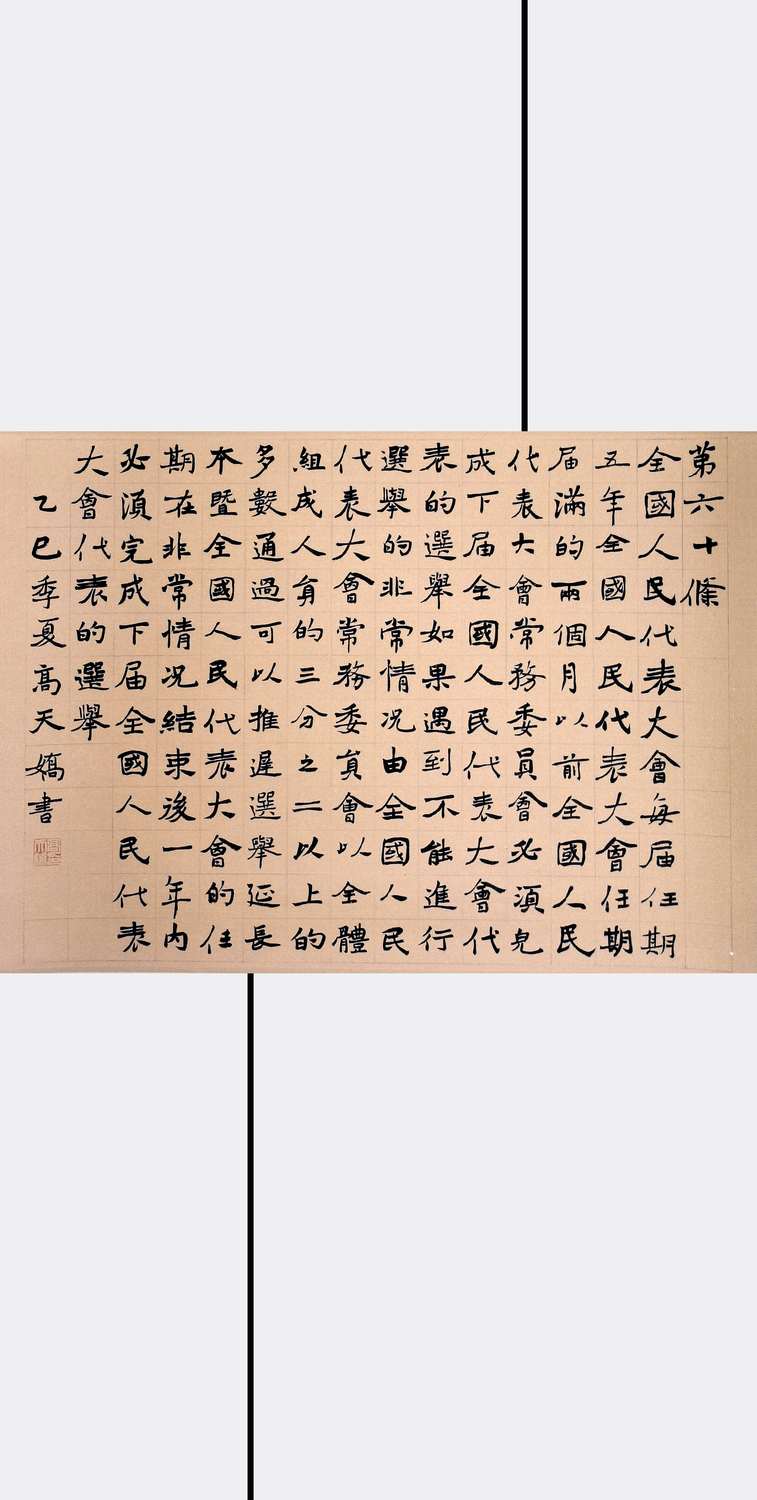 第六十條
全國人民代表大會每届任期
五年全國人民代表大會任期
届滿的兩個月以前全國人民
代表大會常務委員會必須皃
成下届全國人民代表大會代
表的選舉如果遇到不能進行
選舉的非常情况由全國人民
代表大會常務委員會以全體
組成人員的三分之二以上的
多數通過可以推遲選舉延長
本暨全國人民代表大會的任
期在非常情况結束後一年内
必須完成下届全國人民代表
大會代表的選舉
乙巳季夏高天嬌書